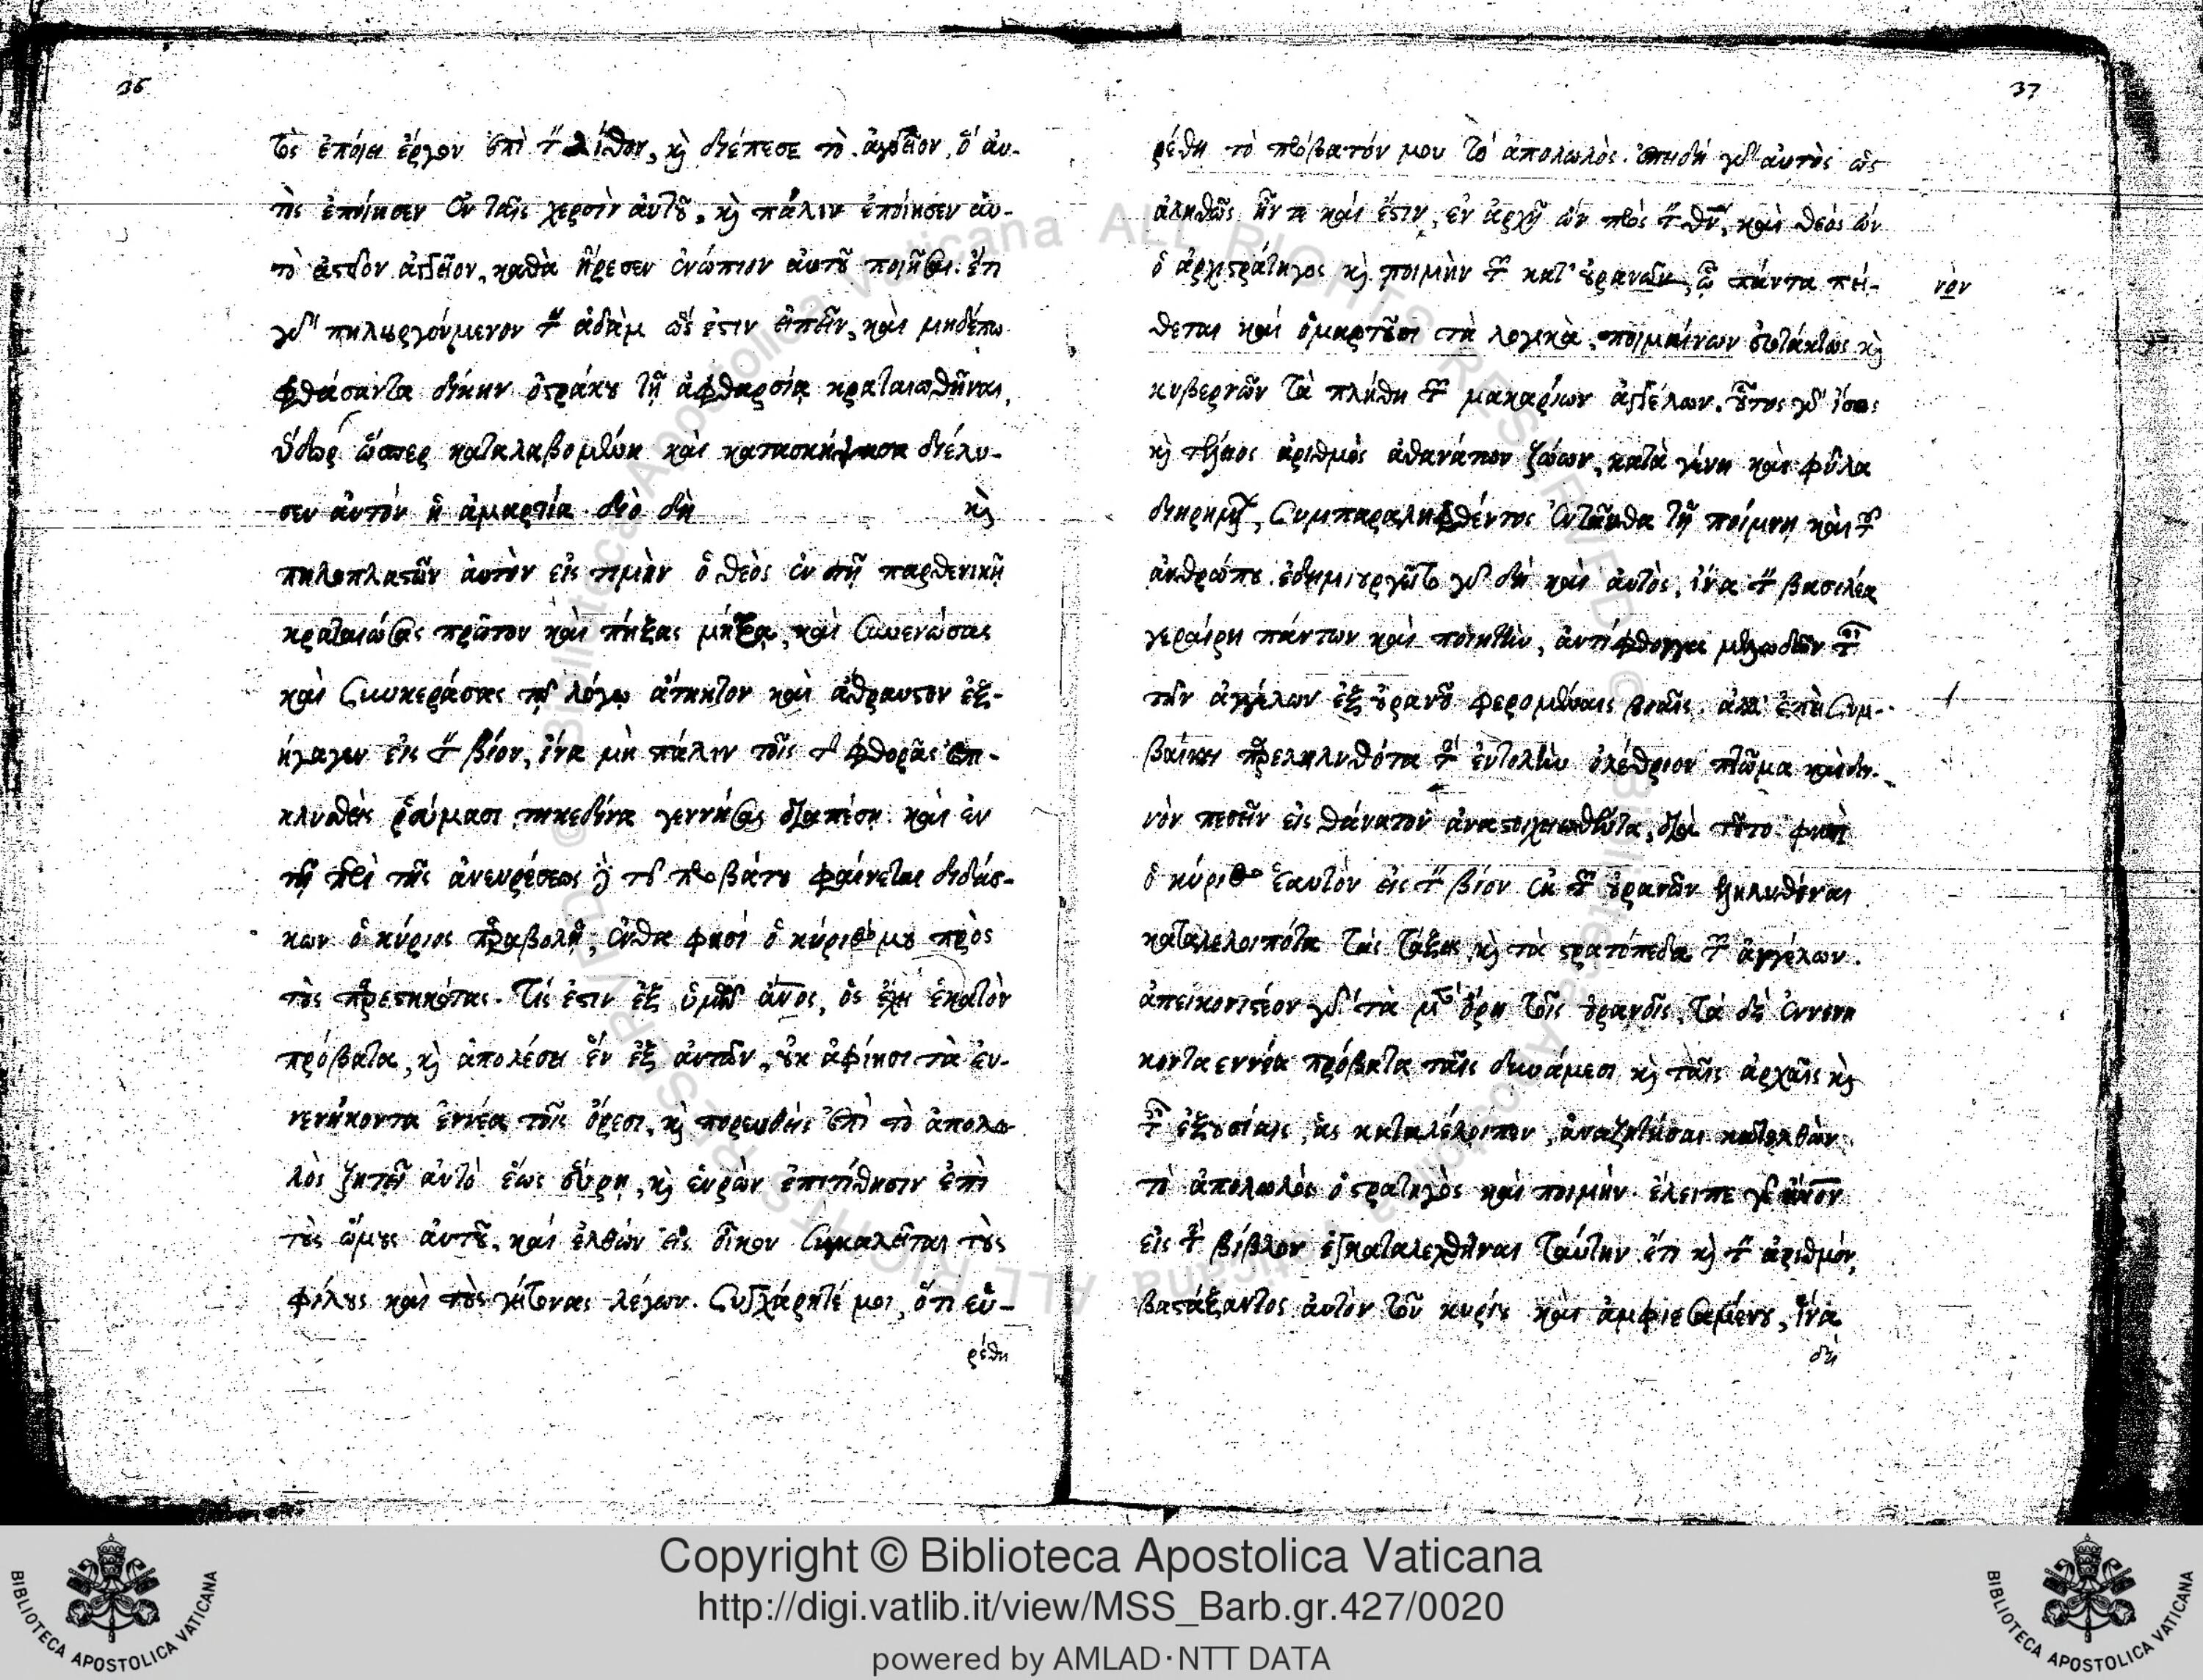 36
τὸς ἐποίει ἔργον ἐπὶ τὸν λίθον, καὶ διέπεσε τὸ ἀγγεῖον, ὃ αὐ-
τὸς ἐποίησεν ἐν ταῖς χερσὶν αὐτοῦ, καὶ πάλιν ἐποίησεν αὐ-
τὸ ἀγγεῖον, καθὰ ἤρεσεν ἐνώπιον αὐτοῦ ποιῆσαι. ἔτι
γὰρ πηλουργούμενον τὸν ἀδὰμ ὡς ἔστιν εἰπεῖν, καὶ μηδέπω
φθάσαντα δίκην ὀστράκου τῇ ἀφθαρσίᾳ κραταιωθῆναι,
ὕδωρ ὥσπερ καταλαβομένη καὶ διέλυ-
σεν αὐτὸν ἡ ἁμαρτία. διὸ δὴ καὶ
πηλοπλαστῶν αὐτὸν εἰς τιμὴν ὁ θεὸς ἐν τῇ παρθενικῇ
κραταιώσας πρῶτον καὶ πήξας μήτρᾳ, καὶ συνενώσας
καὶ συγκεράσας τῷ λόγῳ ἄτηκτον καὶ ἄθραυστον ἐξ-
ήγαγεν εἰς τὸν βίον, ἵνα μὴ πάλιν τοῖς τῆς φθορᾶς ἐπι-
κλυσθεὶς ῥεύμασι τηκεδόνα γεννήσας διαπέσῃ. καὶ ἐν
τῇ περὶ τῆς ἀνευρέσεως δὲ τοῦ προβάτου φαίνεται διδάσ-
κων ὁ κύριος παραβολῇ, ἔνθα φησὶ ὁ κύριός μου πρὸς
τοὺς παρεστηκότας. Τίς ἐστιν ἐξ ὑμῶν ἄνος, ὃς ἔχει ἑκατὸν
πρόβατα, καὶ ἀπολέσει ἓν ἐξ αὐτῶν, οὐκ ἀφίησι τὰ ἐν-
νενήκοντα ἐννέα τοῖς ὄρεσι, καὶ πορευθεὶς ἐπὶ τὸ ἀπολω
λὸς ζητεῖ αὐτὸ ἕως εὕρῃ, καὶ εὑρὼν ἐπιτίθησιν ἐπὶ
τοὺς ὤμους αὐτοῦ, καὶ ἐλθὼν εἰς οἶκον συγκαλεῖται τοὺς
φίλους καὶ τοὺς γείτονας λέγων. Συγχάρητέ μοι, ὅτι εὗ-
ρέθη
37
ρέθη τὸ πρόβατόν μου τὸ ἀπολωλός. ἐπειδὴ γὰρ αὐτὸς ὡς
ἀληθῶς ἦν τε καὶ ἔστιν, ἐν ἀρχῇ ὢν πρὸς τὸν θν, καὶ θεὸς ὢν
ὁ ἀρχιστράτηγος καὶ ποιμὴν τῶν κατ' οὐρανῶν, ᾧ πάντα πεί-
νὸν
θεται καὶ ὁμαρτοῦσι τὰ λογικὰ, ποιμαίνων εὐτάκτως καὶ
κυβερνῶν τὰ πλήθη τῶν μακαρίων ἀγγέλων. οὗτος γὰρ ἴσος
καὶ τέλειος ἀριθμὸς ἀθανάτων ζώων, κατὰ γένη καὶ φῦλα
διῃρημένων, συμπαραληφθέντος ἐνταῦθα τῇ ποίμνῃ καὶ τοῦ
ἀνθρώπου. ἐδημιουργεῖτο γὰρ δὴ καὶ αὐτὸς, ἵνα τὸν βασιλέα
γεραίρῃ πάντων καὶ ποιητὴν, ἀντίφθογγα μελῳδῶν ταῖς
τῶν ἀγγέλων ἐξ οὐρανοῦ φερομέναις βοαῖς. ἀλλ' ἐπεὶ συμ-
βαίνει παρεληλυθότα τὴν ἐντολὴν ὀλέθριον πτῶμα καὶ δει-
νὸν πεσεῖν εἰς θάνατον ἀναστοιχειωθέντα, διὰ τοῦτο φησὶ
ὁ κύριος ἑαυτὸν εἰς τὸν βίον ἐκ τῶν οὐρανῶν ἐληλυθέναι
καταλελοιπότα τὰς τάξεις καὶ τὰ στρατόπεδα τῶν ἀγγέλων.
ἀπεικονιστέον γὰρ τὰ μὲν ὄρη τοῖς οὐρανοῖς, τὰ δὲ ἐννενή
κοντα εννέα πρόβατα ταῖς δυνάμεσι καὶ ταῖς ἀρχαῖς καὶ
ταῖς ἐξουσίαις, ἃς καταλέλοιπεν, ἀναζητῆσαι κατελθὼν
τὸ ἀπολωλὸς ὁ στρατηγὸς καὶ ποιμήν. ἔλειπε γὰρ ἄνον
εἰς τὴν βίβλον ἐγκαταλεχθῆναι ταύτην ἔτι καὶ τὸν ἀριθμόν,
βαστάξαντος αὐτὸν τοῦ κυρίου καὶ ἀμφιεσαμένου, ἵνα
δὴ
Copyright © Biblioteca Apostolica Vaticana
http://digi.vatlib.it/view/MSS_Barb.gr.427/0020
powered by AMLAD·NTT DATA
BIBLIOTECA APOSTOLICA VATICANA
BIBLIOTECA APOSTOLICA VATICANA